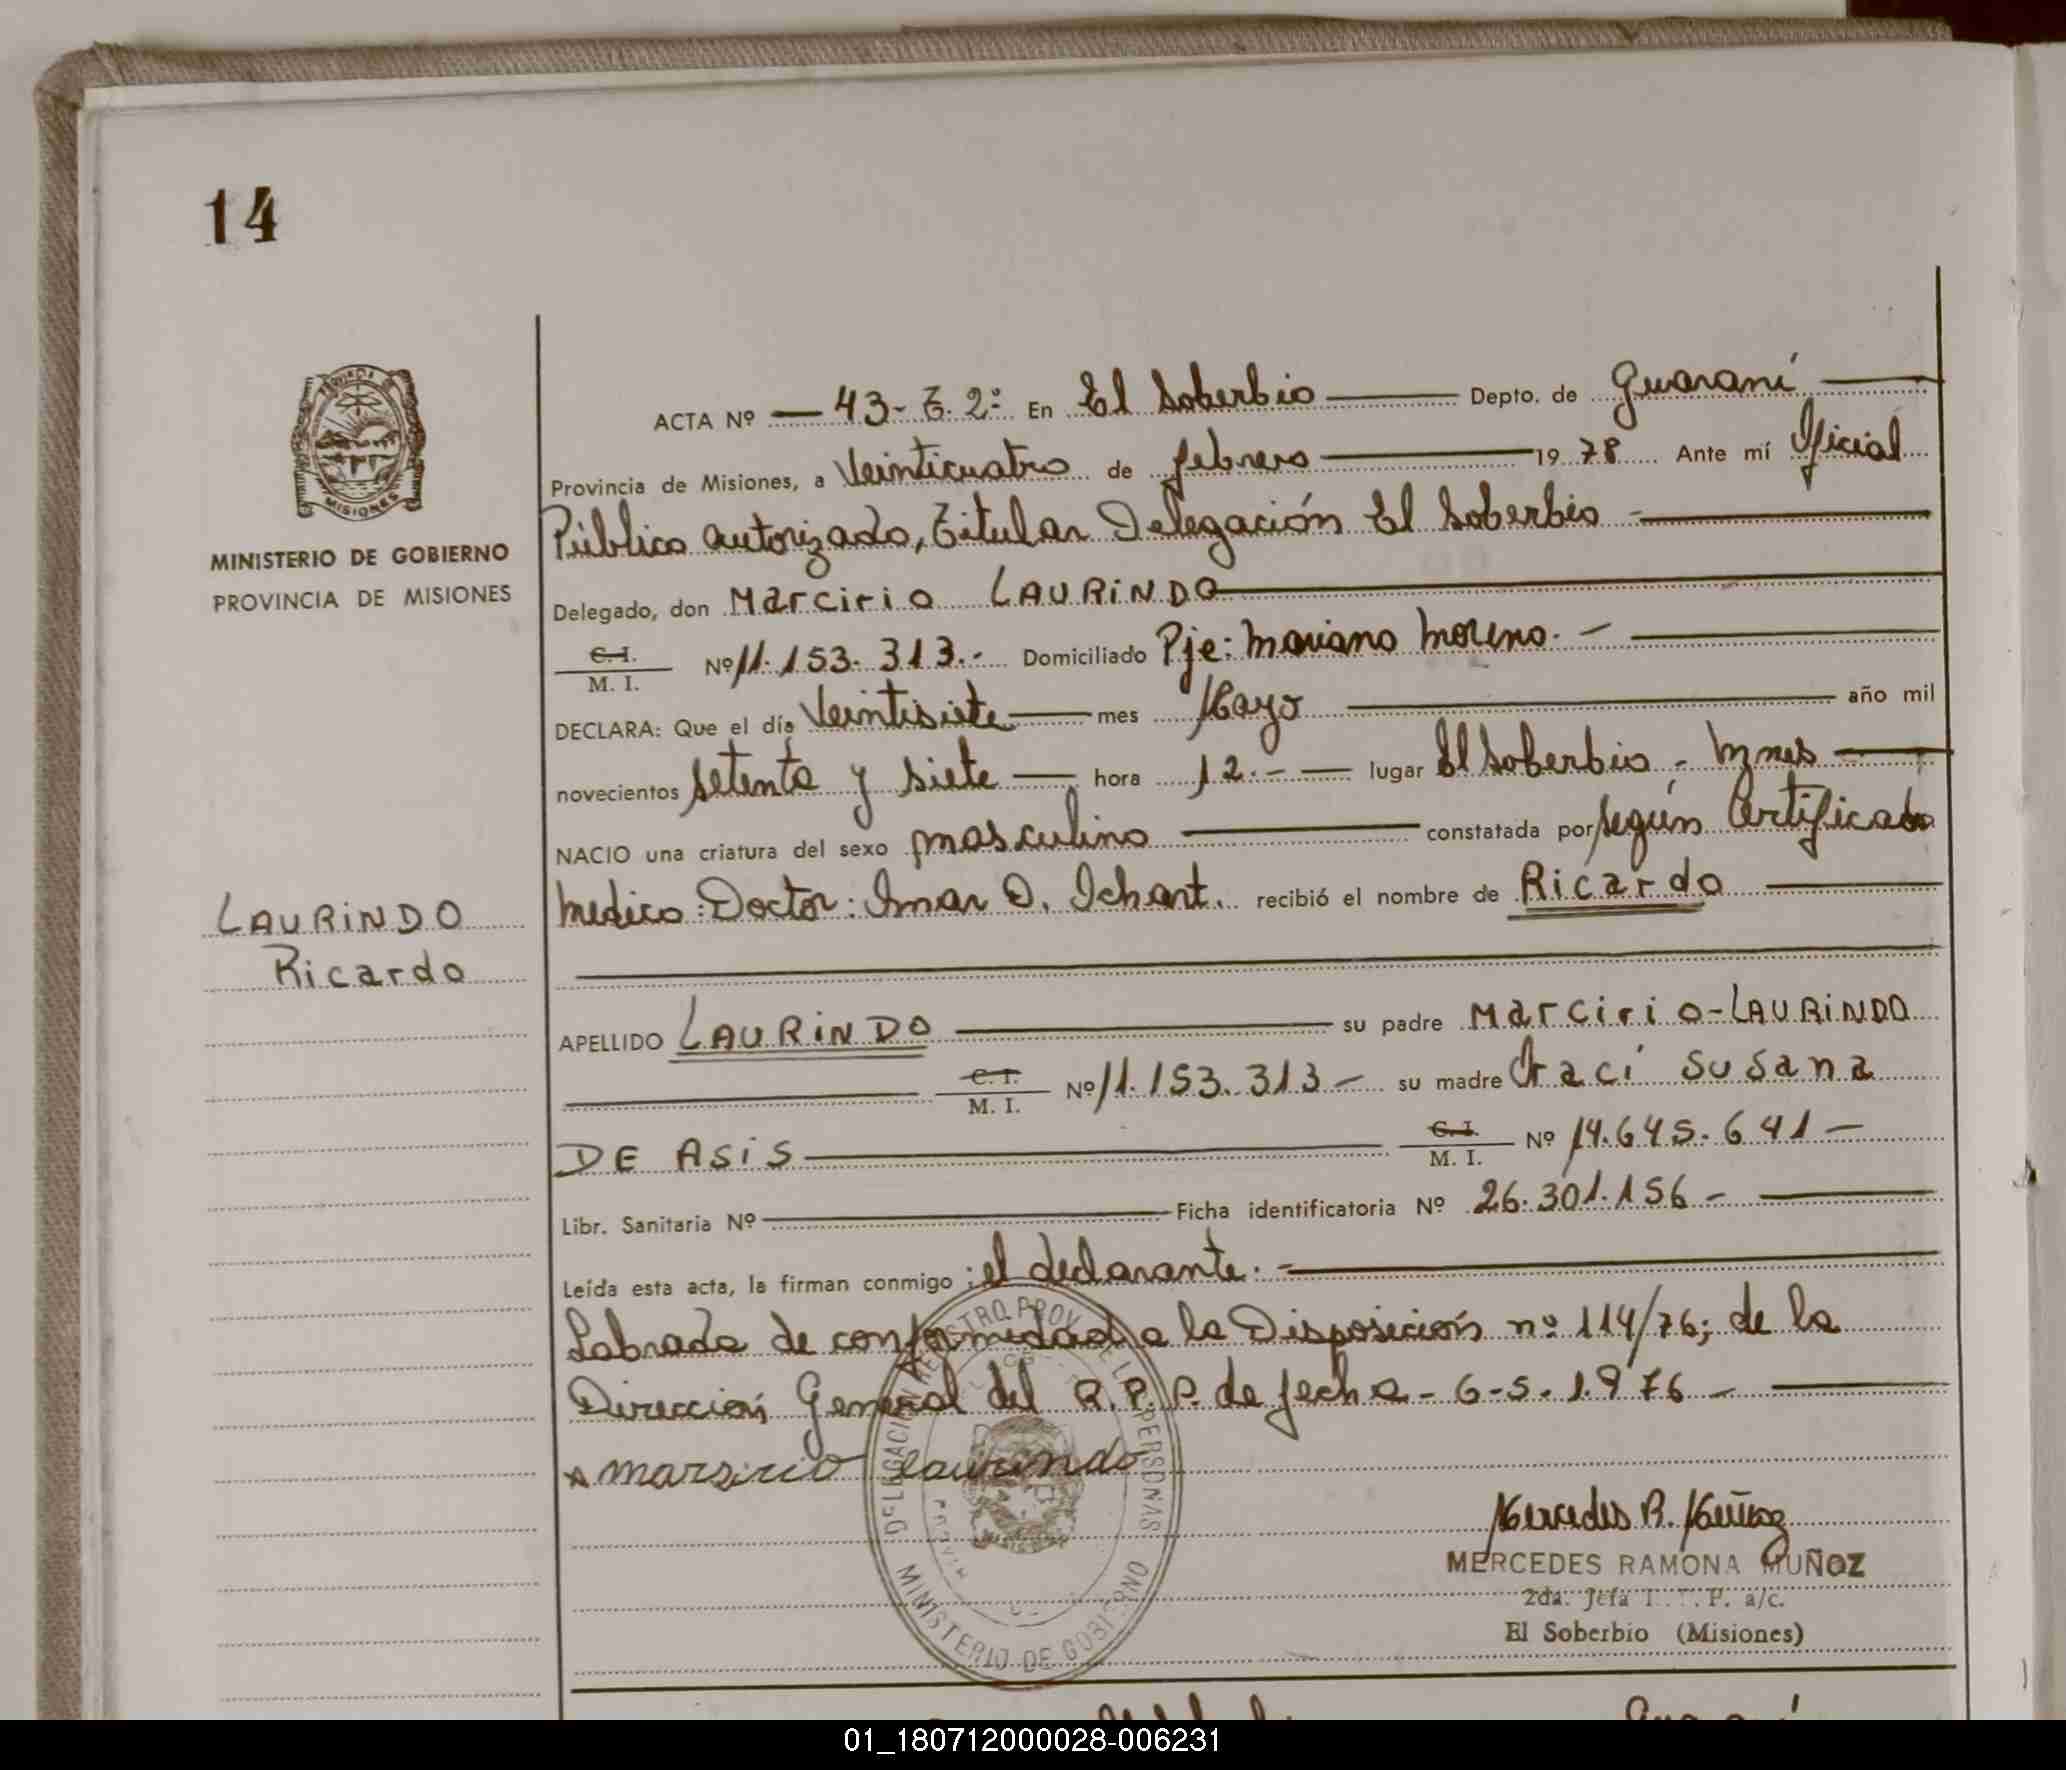 14
MISIONES
MINISTERIO DE GOBIERNO
PROVINCIA DE MISIONES
LAURINDO
Ricardo
ACTA Nº 43- T. 2º En El Soberbio Depto. de Guaraní
Provincia de Misiones, a Veinticuatro de febrero 19 78 Ante mí Oficial
Público autorizado, Titular Delegación El Soberbio -
Delegado, don Marcirio LAURINDO
C. I. / M. I. Nº 11.153.313.- Domiciliado Pje: Mariano Moreno. -
DECLARA: Que el día Veintisiete mes Mayo año mil
novecientos setenta y siete hora 12.- lugar El Soberbio - Mnes
NACIO una criatura del sexo masculino constatada por según Certificado
Medico: Doctor: Imar O. Ichart. recibió el nombre de Ricardo
APELLIDO LAURINDO su padre Marcirio-LAURINDO
C. I. / M. I. Nº 11.153.313- su madre Iraci Susana
DE ASIS C. I. / M. I. Nº 14.645.641-
Libr. Sanitaria Nº Ficha identificatoria Nº 26.301.156-
Leída esta acta, la firman conmigo: el declarante. -
Labrada de conformidad a la Disposición nº 114/76; de la
Dirección General del R.P.P. de fecha - 6-5-1976 -
marsirio laurindo
DELEGACION REGISTRO PROV. DE L PERSONAS
MINISTERIO DE GOBIERNO
Mercedes R. Muñoz
MERCEDES RAMONA MUÑOZ
2da. Jefa P. a/c.
El Soberbio (Misiones)
01_180712000028-006231